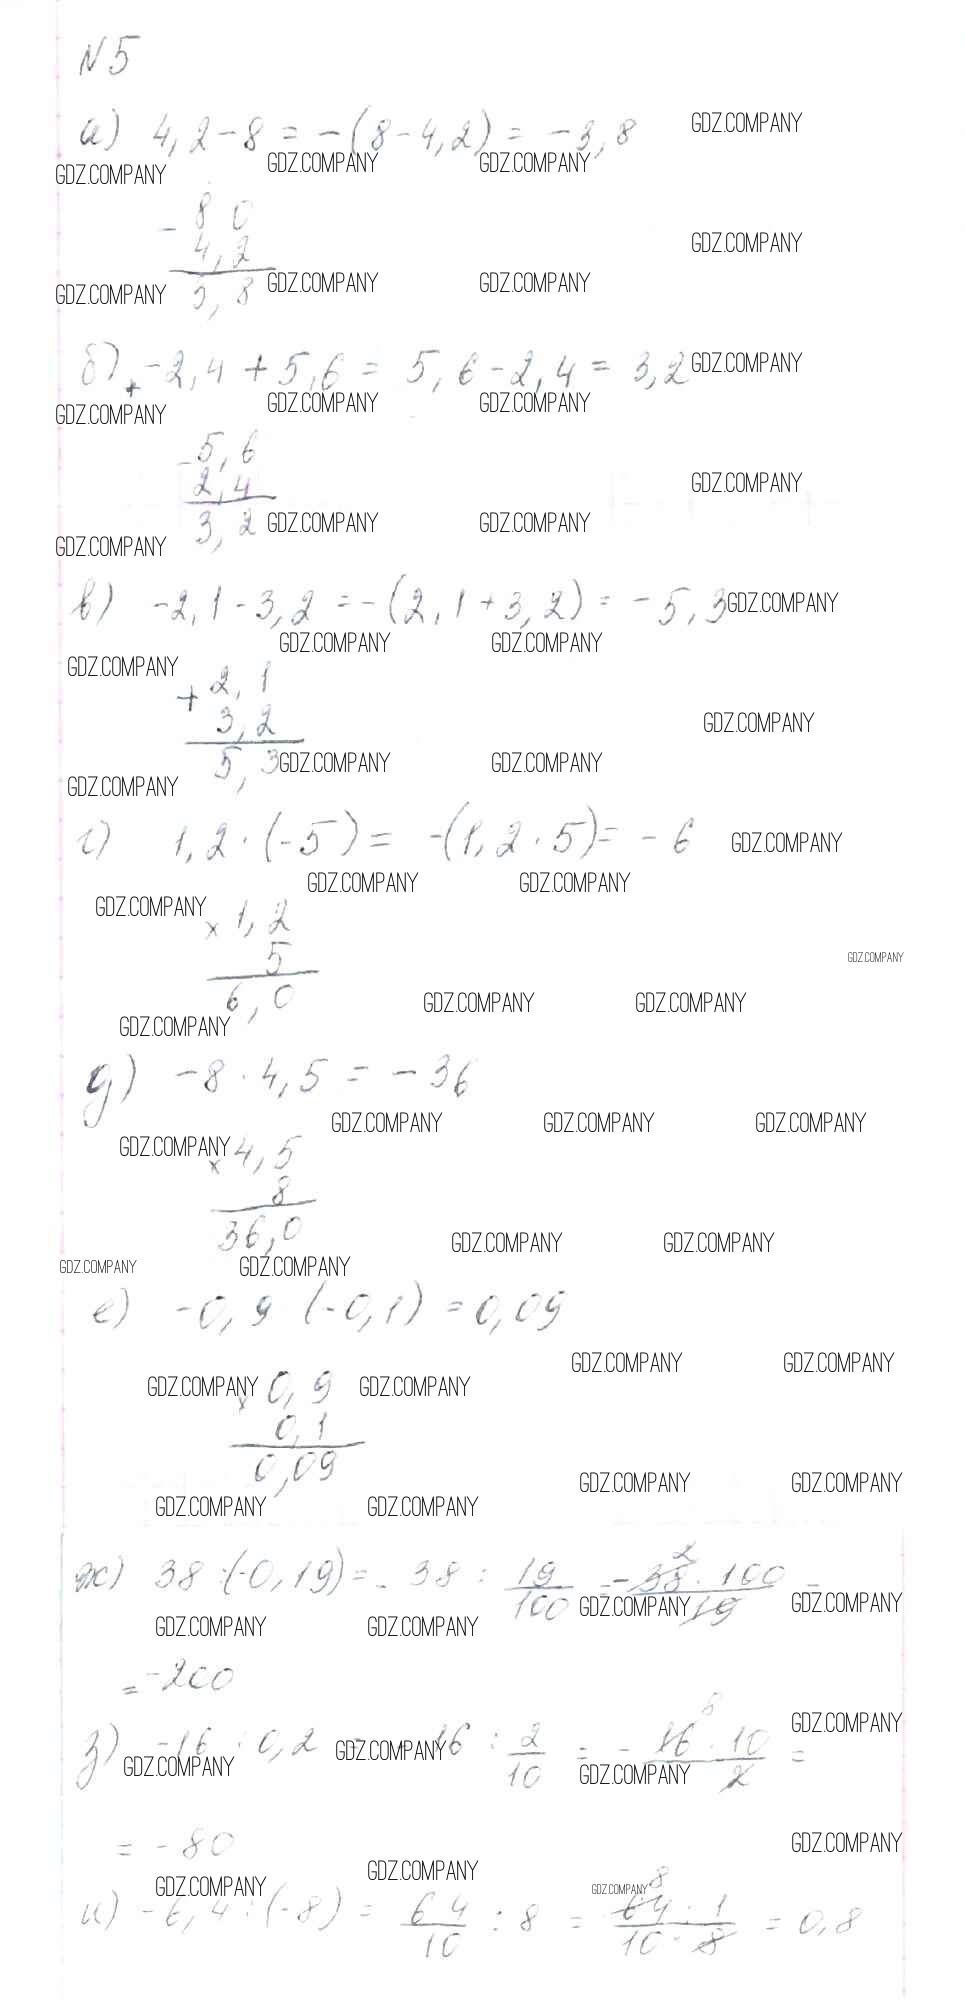 N5
а) 4,2-8 = -(8-4,2) = -3,8 GDZ.COMPANY
GDZ.COMPANY GDZ.COMPANY GDZ.COMPANY
- 8 0
4,2 GDZ.COMPANY
GDZ.COMPANY 3,8 GDZ.COMPANY GDZ.COMPANY
б) -2,4 + 5,6 = 5,6 - 2,4 = 3,2 GDZ.COMPANY
+
GDZ.COMPANY GDZ.COMPANY GDZ.COMPANY
- 5,6
2,4 GDZ.COMPANY
GDZ.COMPANY 3,2 GDZ.COMPANY GDZ.COMPANY
в) -2,1 - 3,2 = -(2,1 + 3,2) = -5,3 GDZ.COMPANY
GDZ.COMPANY GDZ.COMPANY GDZ.COMPANY
+ 2,1
3,2 GDZ.COMPANY
GDZ.COMPANY 5,3 GDZ.COMPANY GDZ.COMPANY
г) 1,2 · (-5) = -(1,2 · 5) = -6 GDZ.COMPANY
GDZ.COMPANY GDZ.COMPANY GDZ.COMPANY
× 1,2
5 GDZ.COMPANY
6,0 GDZ.COMPANY GDZ.COMPANY
GDZ.COMPANY
д) -8 · 4,5 = -36
GDZ.COMPANY GDZ.COMPANY GDZ.COMPANY
GDZ.COMPANY × 4,5
8
36,0 GDZ.COMPANY GDZ.COMPANY
GDZ.COMPANY GDZ.COMPANY
е) -0,9 (-0,1) = 0,09
GDZ.COMPANY GDZ.COMPANY
GDZ.COMPANY × 0,9 GDZ.COMPANY
0,1
0,09 GDZ.COMPANY GDZ.COMPANY
GDZ.COMPANY GDZ.COMPANY
ж) 38 : (-0,19) = -38 : 19/100 = -38 · 100/19 =
2
GDZ.COMPANY GDZ.COMPANY GDZ.COMPANY GDZ.COMPANY
= -200
з) -16 : 0,2 = -16 : 2/10 = -16 · 10/2 =
8 GDZ.COMPANY
GDZ.COMPANY GDZ.COMPANY GDZ.COMPANY
= -80 GDZ.COMPANY
GDZ.COMPANY GDZ.COMPANY GDZ.COMPANY 8
и) -6,4 : (-8) = 64/10 : 8 = 64 · 1/10 · 8 = 0,8